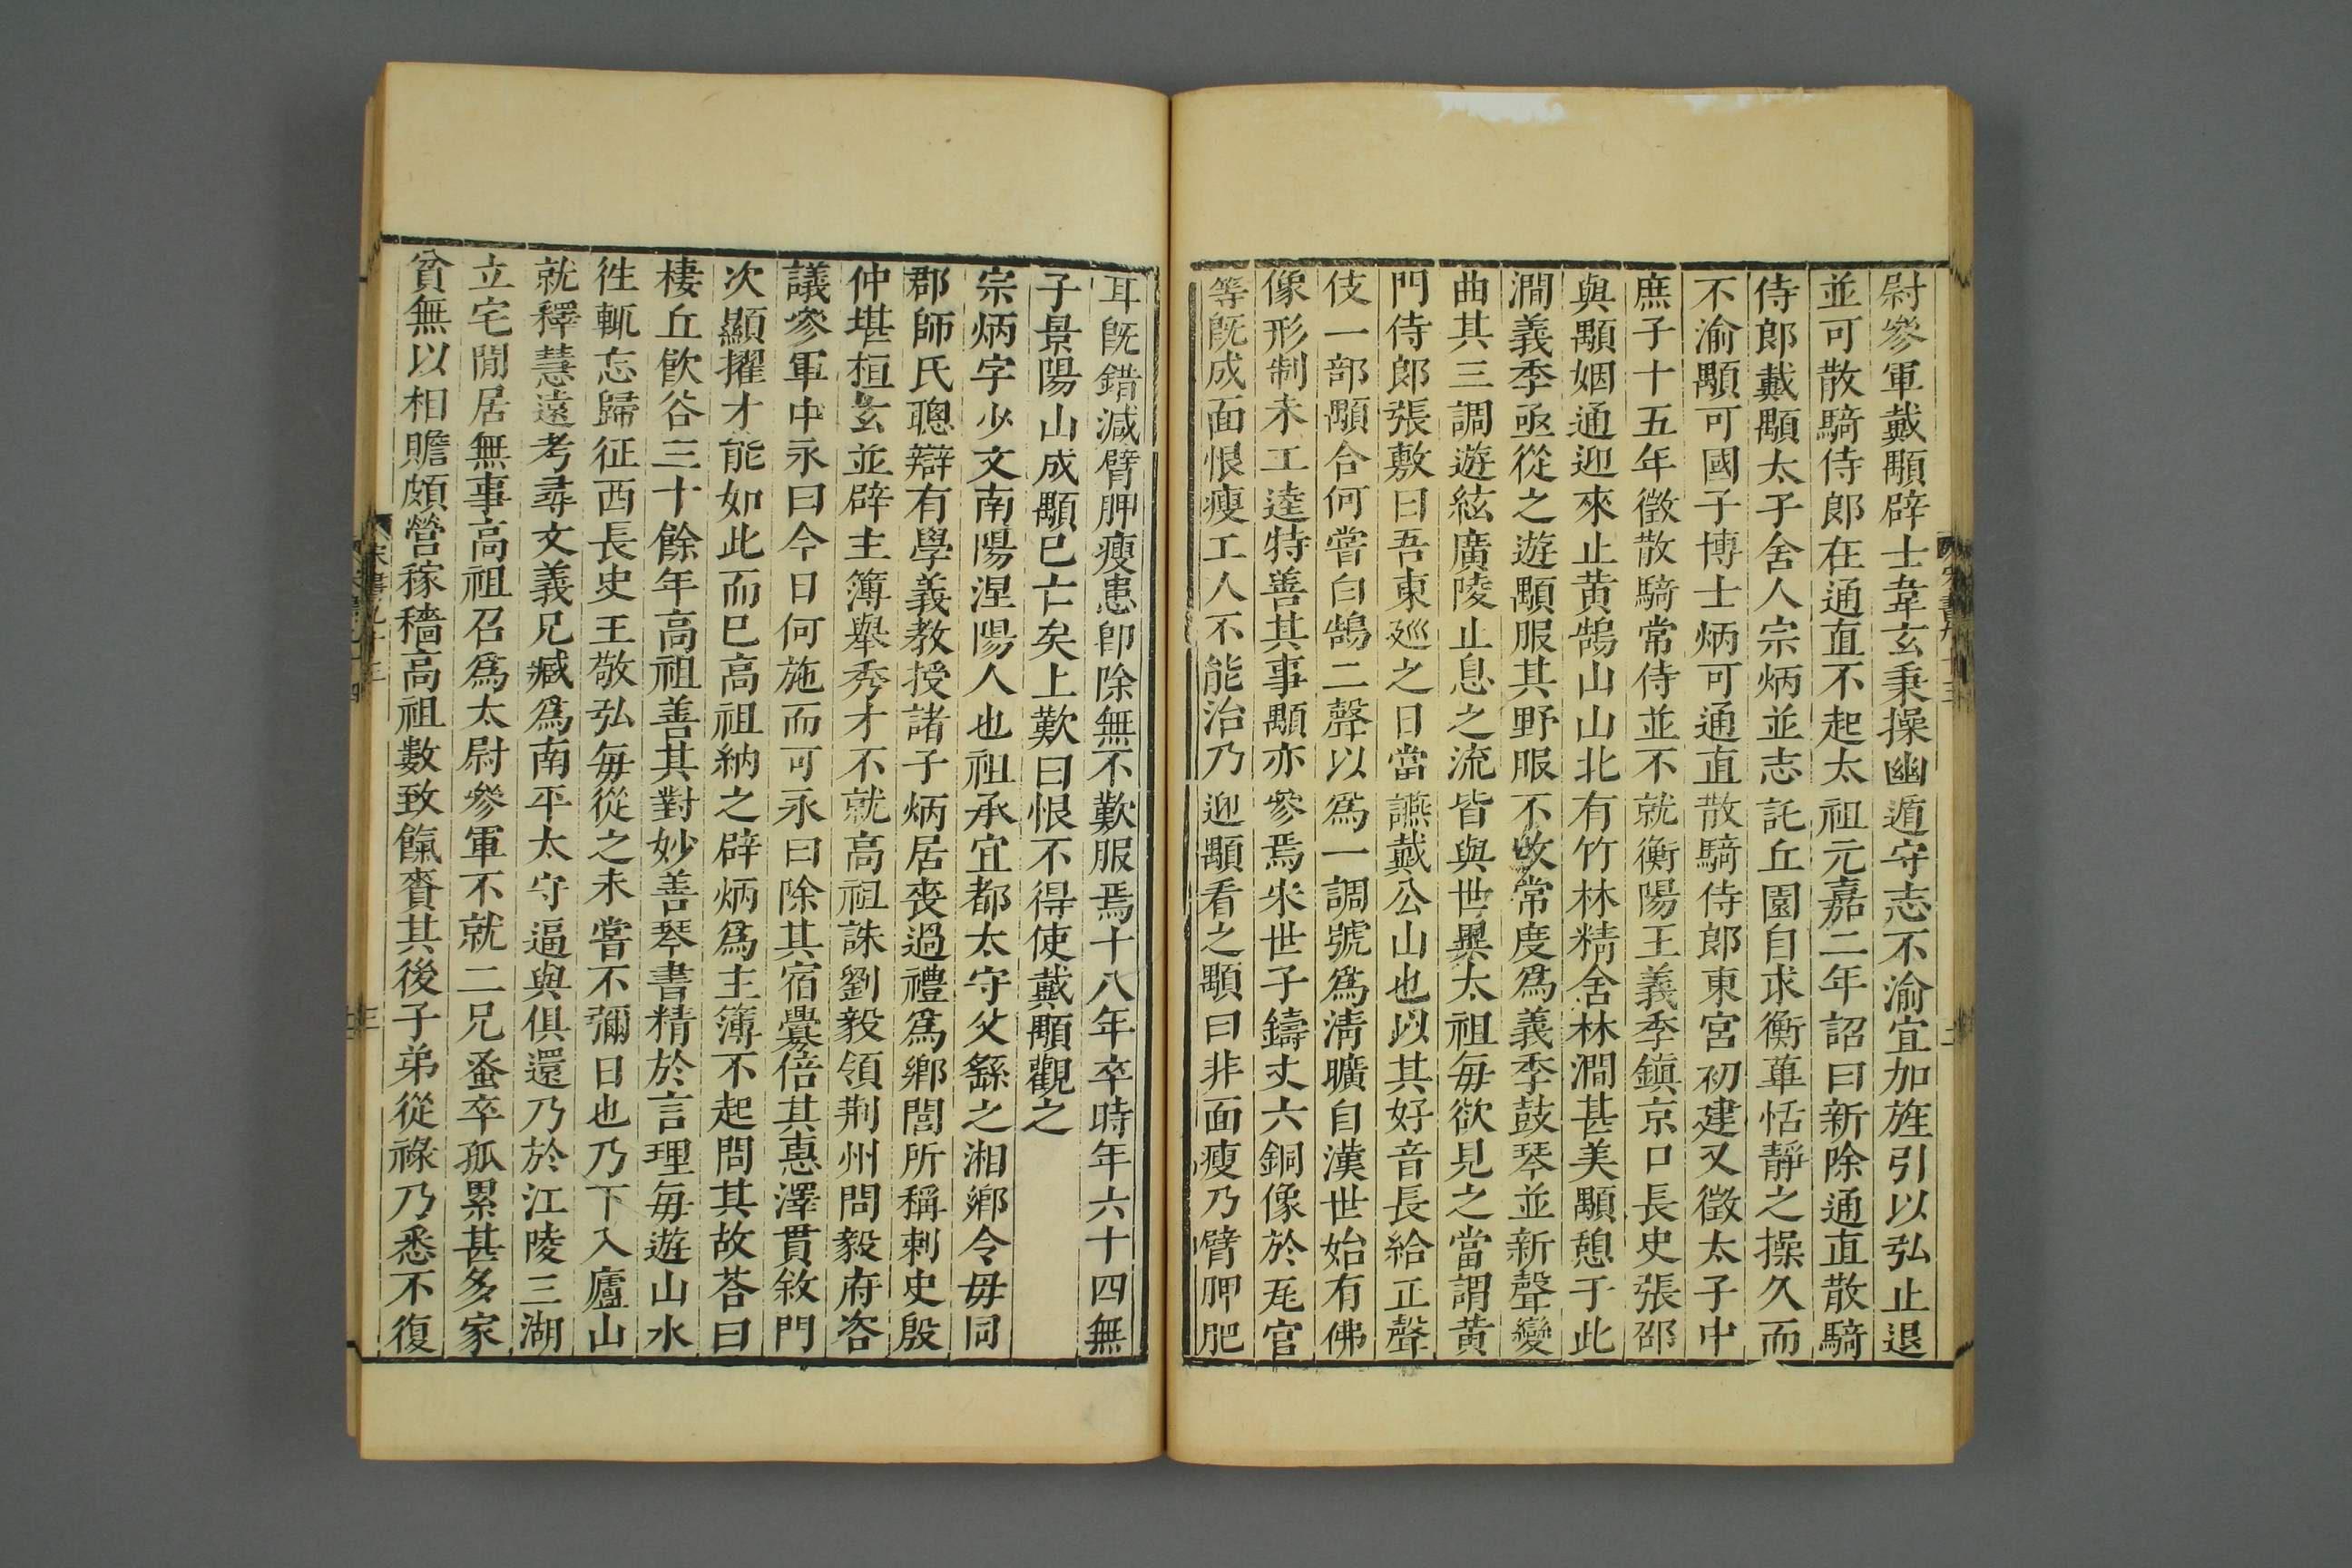 尉參軍戴顒辟士韋玄秉操幽遁守志不渝宜加旌引以弘止退
並可散騎侍郎在通直不起太祖元嘉二年詔曰新除通直散騎
侍郎戴顒太子舍人宗炳並志託丘園自求衡蓽恬靜之操久而
不渝顒可國子博士炳可通直散騎侍郎東宮初建又徵太子中
庶子十五年徵散騎常侍並不就衡陽王義季鎮京口長史張邵
與顒姻通迎來止黃鵠山山北有竹林精舍林澗甚美顒憩于此
澗義季亟從之遊顒服其野服不改常度為義季鼓琴並新聲變
曲其三調遊絃廣陵止息之流皆與世異太祖每欲見之當謂黃
門侍郎張敷曰吾東巡之日當讌戴公山也以其好音長給正聲
伎一部顒合何嘗白鵠二聲以為一調號為清曠自漢世始有佛
像形制未工逵特善其事顒亦參焉宋世子鑄丈六銅像於瓦官
等既成面恨瘦工人不能治乃迎顒看之顒曰非面瘦乃臂胛肥
耳既錯減臂胛瘦患即除無不歎服焉十八年卒時年六十四無
子景陽山成顒已亡矣上歎曰恨不得使戴顒觀之
宗炳字少文南陽涅陽人也祖承宜都太守父繇之湘鄉令母同
郡師氏聰辯有學義教授諸子炳居喪過禮為鄉閭所稱刺史殷
仲堪桓玄並辟主簿舉秀才不就高祖誅劉毅領荊州問毅府咨
議參軍申永曰今日何施而可永曰除其宿釁倍其惠澤貫敘門
次顯擢才能如此而已高祖納之辟炳為主簿不起問其故荅曰
棲丘飲谷三十餘年高祖善其對妙善琴書精於言理每遊山水
徃輒忘歸征西長史王敬弘每從之未嘗不彌日也乃下入廬山
就釋慧遠考尋文義兄臧為南平太守逼與俱還乃於江陵三湖
立宅閒居無事高祖召為太尉參軍不就二兄蚤卒孤累甚多家
貧無以相贍頗營稼穡高祖數致餼賚其後子弟從祿乃悉不復